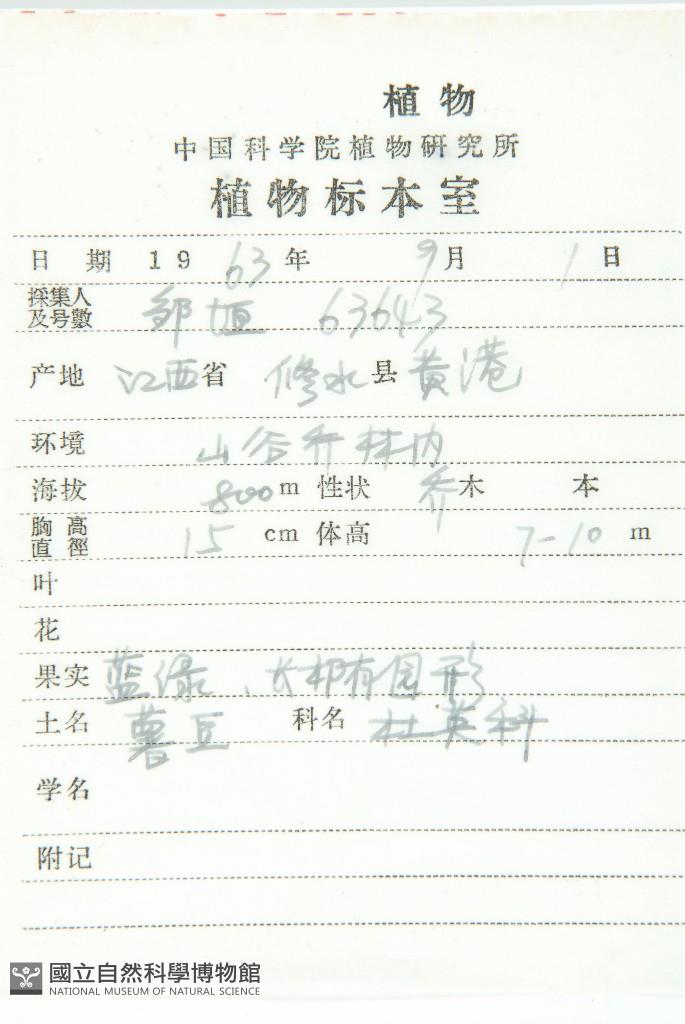 植物
中国科学院植物研究所
植物标本室
日期 1963年 9月 1日
採集人及号數 邹垣 63643
产地 江西省 修水县 黄港
环境 山谷乔林内
海拔 800m 性状 乔木 本
胸高直徑 15 cm 体高 7-10 m
叶
花
果实 蓝绿、长 形
土名 薯豆 科名 杜英科
学名
附记
國立自然科學博物館
NATIONAL MUSEUM OF NATURAL SCIENCE